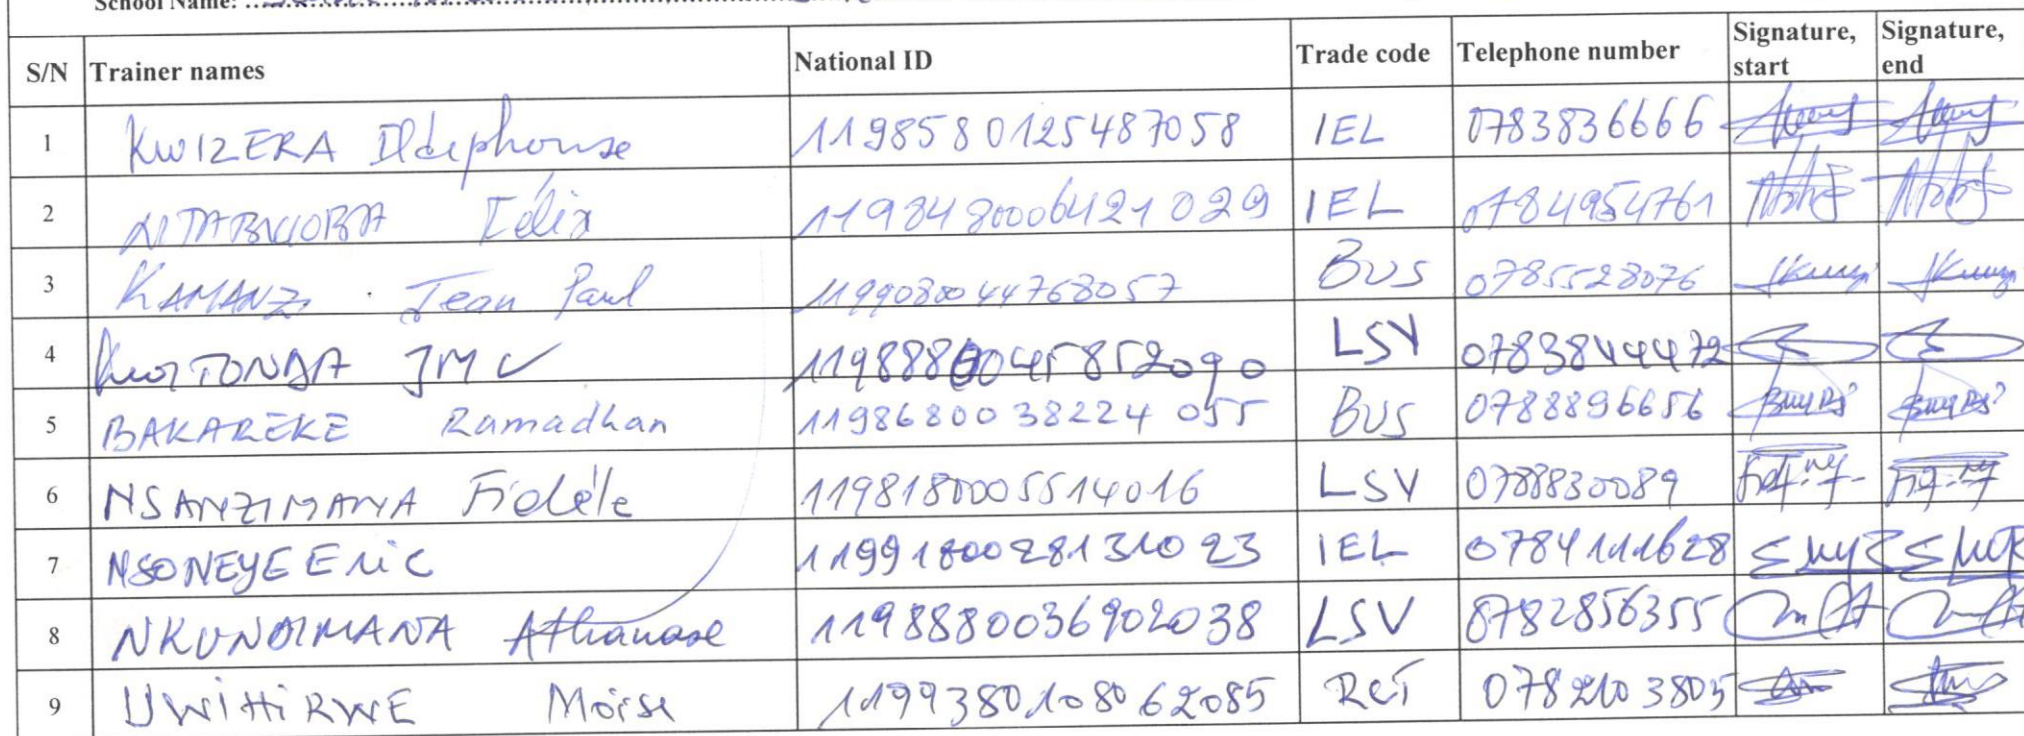 School Name:
S/N Trainer names National ID Trade code Telephone number Signature, start Signature, end
1 KWIZERA Ildephonse 1198580125487058 IEL 0783836666
2 NTABWOBA Félix 1198480006421029 IEL 0784954761
3 KAMANZI Jean Paul 1199080044768057 BUS 0785528076
4 KWITONDA JMV 1198880045852090 LSV 0783844472
5 BAKAREKE Ramadhan 1198680038224055 BUS 0788896656
6 NSANZIMANA Fidèle 1198180005514016 LSV 0788830089
7 NSONEYE Eric 1199180028131023 IEL 0784111628
8 NKUNDIMANA Athanase 1198880036902038 LSV 0782856355
9 UWIHIRWE Moïse 1199380108062085 RCT 0782103805